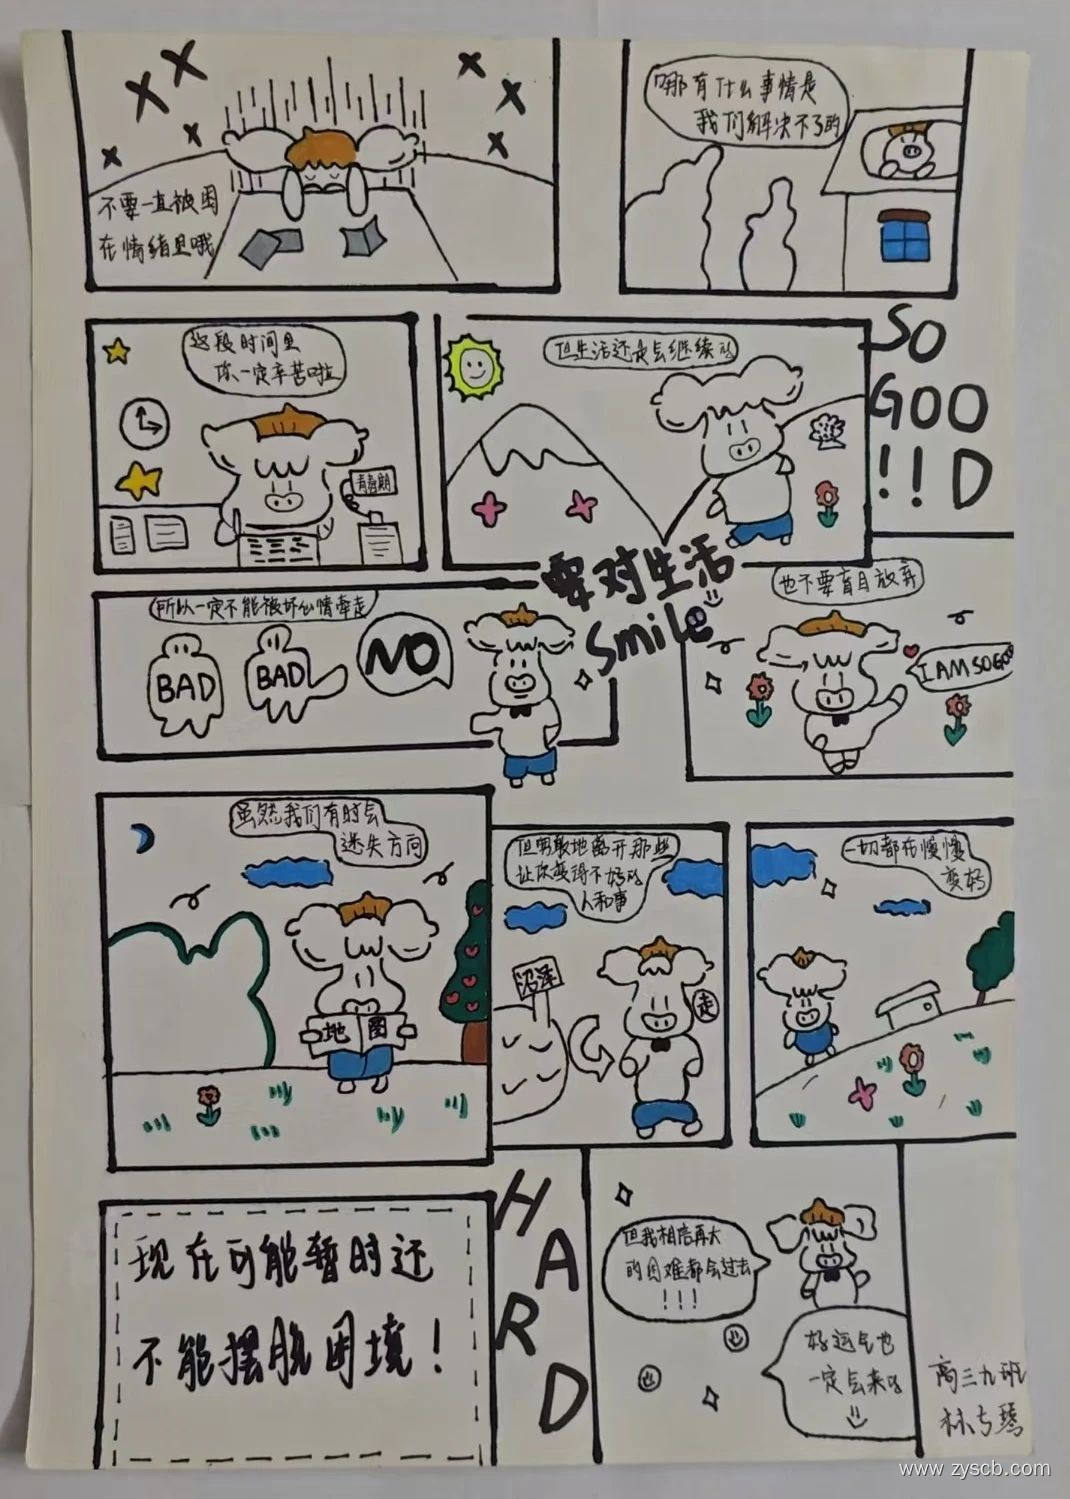 不要一直被困
在情绪里哦
哪有什么事情是
我们解决不了的
这段时间里
你一定辛苦啦
青春期
但生活还是会继续的
SO
GOO
!!D
要对生活
Smile
所以一定不能被坏心情牵走
BAD
BAD
NO
也不要盲目放弃
I AM SO GOOD
虽然我们有时会
迷失方向
地图
但勇敢地离开那些
让你变得不好的
人和事
沼泽
走
一切都在慢慢
变好
现在可能暂时还
不能摆脱困境！
HARD
但我相信再大
的困难都会过去
!!!
好运气也
一定会来的
高三九班
www.zyscb.com